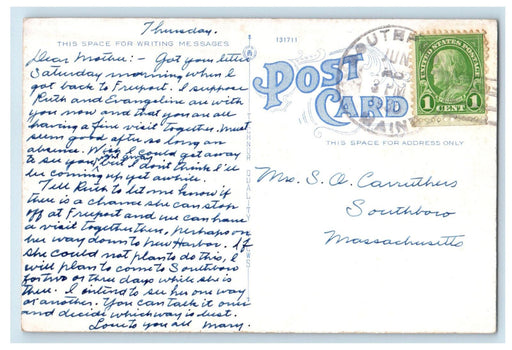 Thursday.
THIS SPACE FOR WRITING MESSAGES
131711
Dear Mother:- Got your letter
Saturday morning when I
got back to Freeport. I suppose
Ruth and Evangeline are with
you now and that you are all
having a fine visit together. Must
seem good after so long an
absence. Wish I could get away
to see you, but I don't think I'll
be coming up yet awhile.
Tell Ruth to let me know if
there is a chance she can stop
off at Freeport and we can have
a visit together then, perhaps on
her way down to New Harbor. If
she could not plan to do this, I
will plan to come to Southboro
for two or three days while she is
there. I intend to see her one way
or another. You can talk it over
and decide which way is best.
Love to you all Mary.
POST
CARD
THIS SPACE FOR ADDRESS ONLY
JUN
3 PM
MAINE
UNITED STATES POSTAGE
1 1
CENT
Mrs. S. O. Carruthers
Southboro
Massachusetts